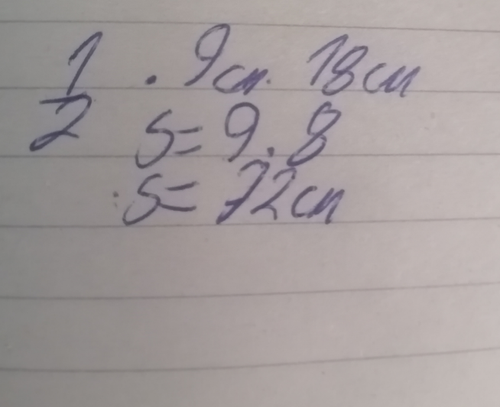 1 . 9см. 18см
2 S = 9 . 8
S = 72см